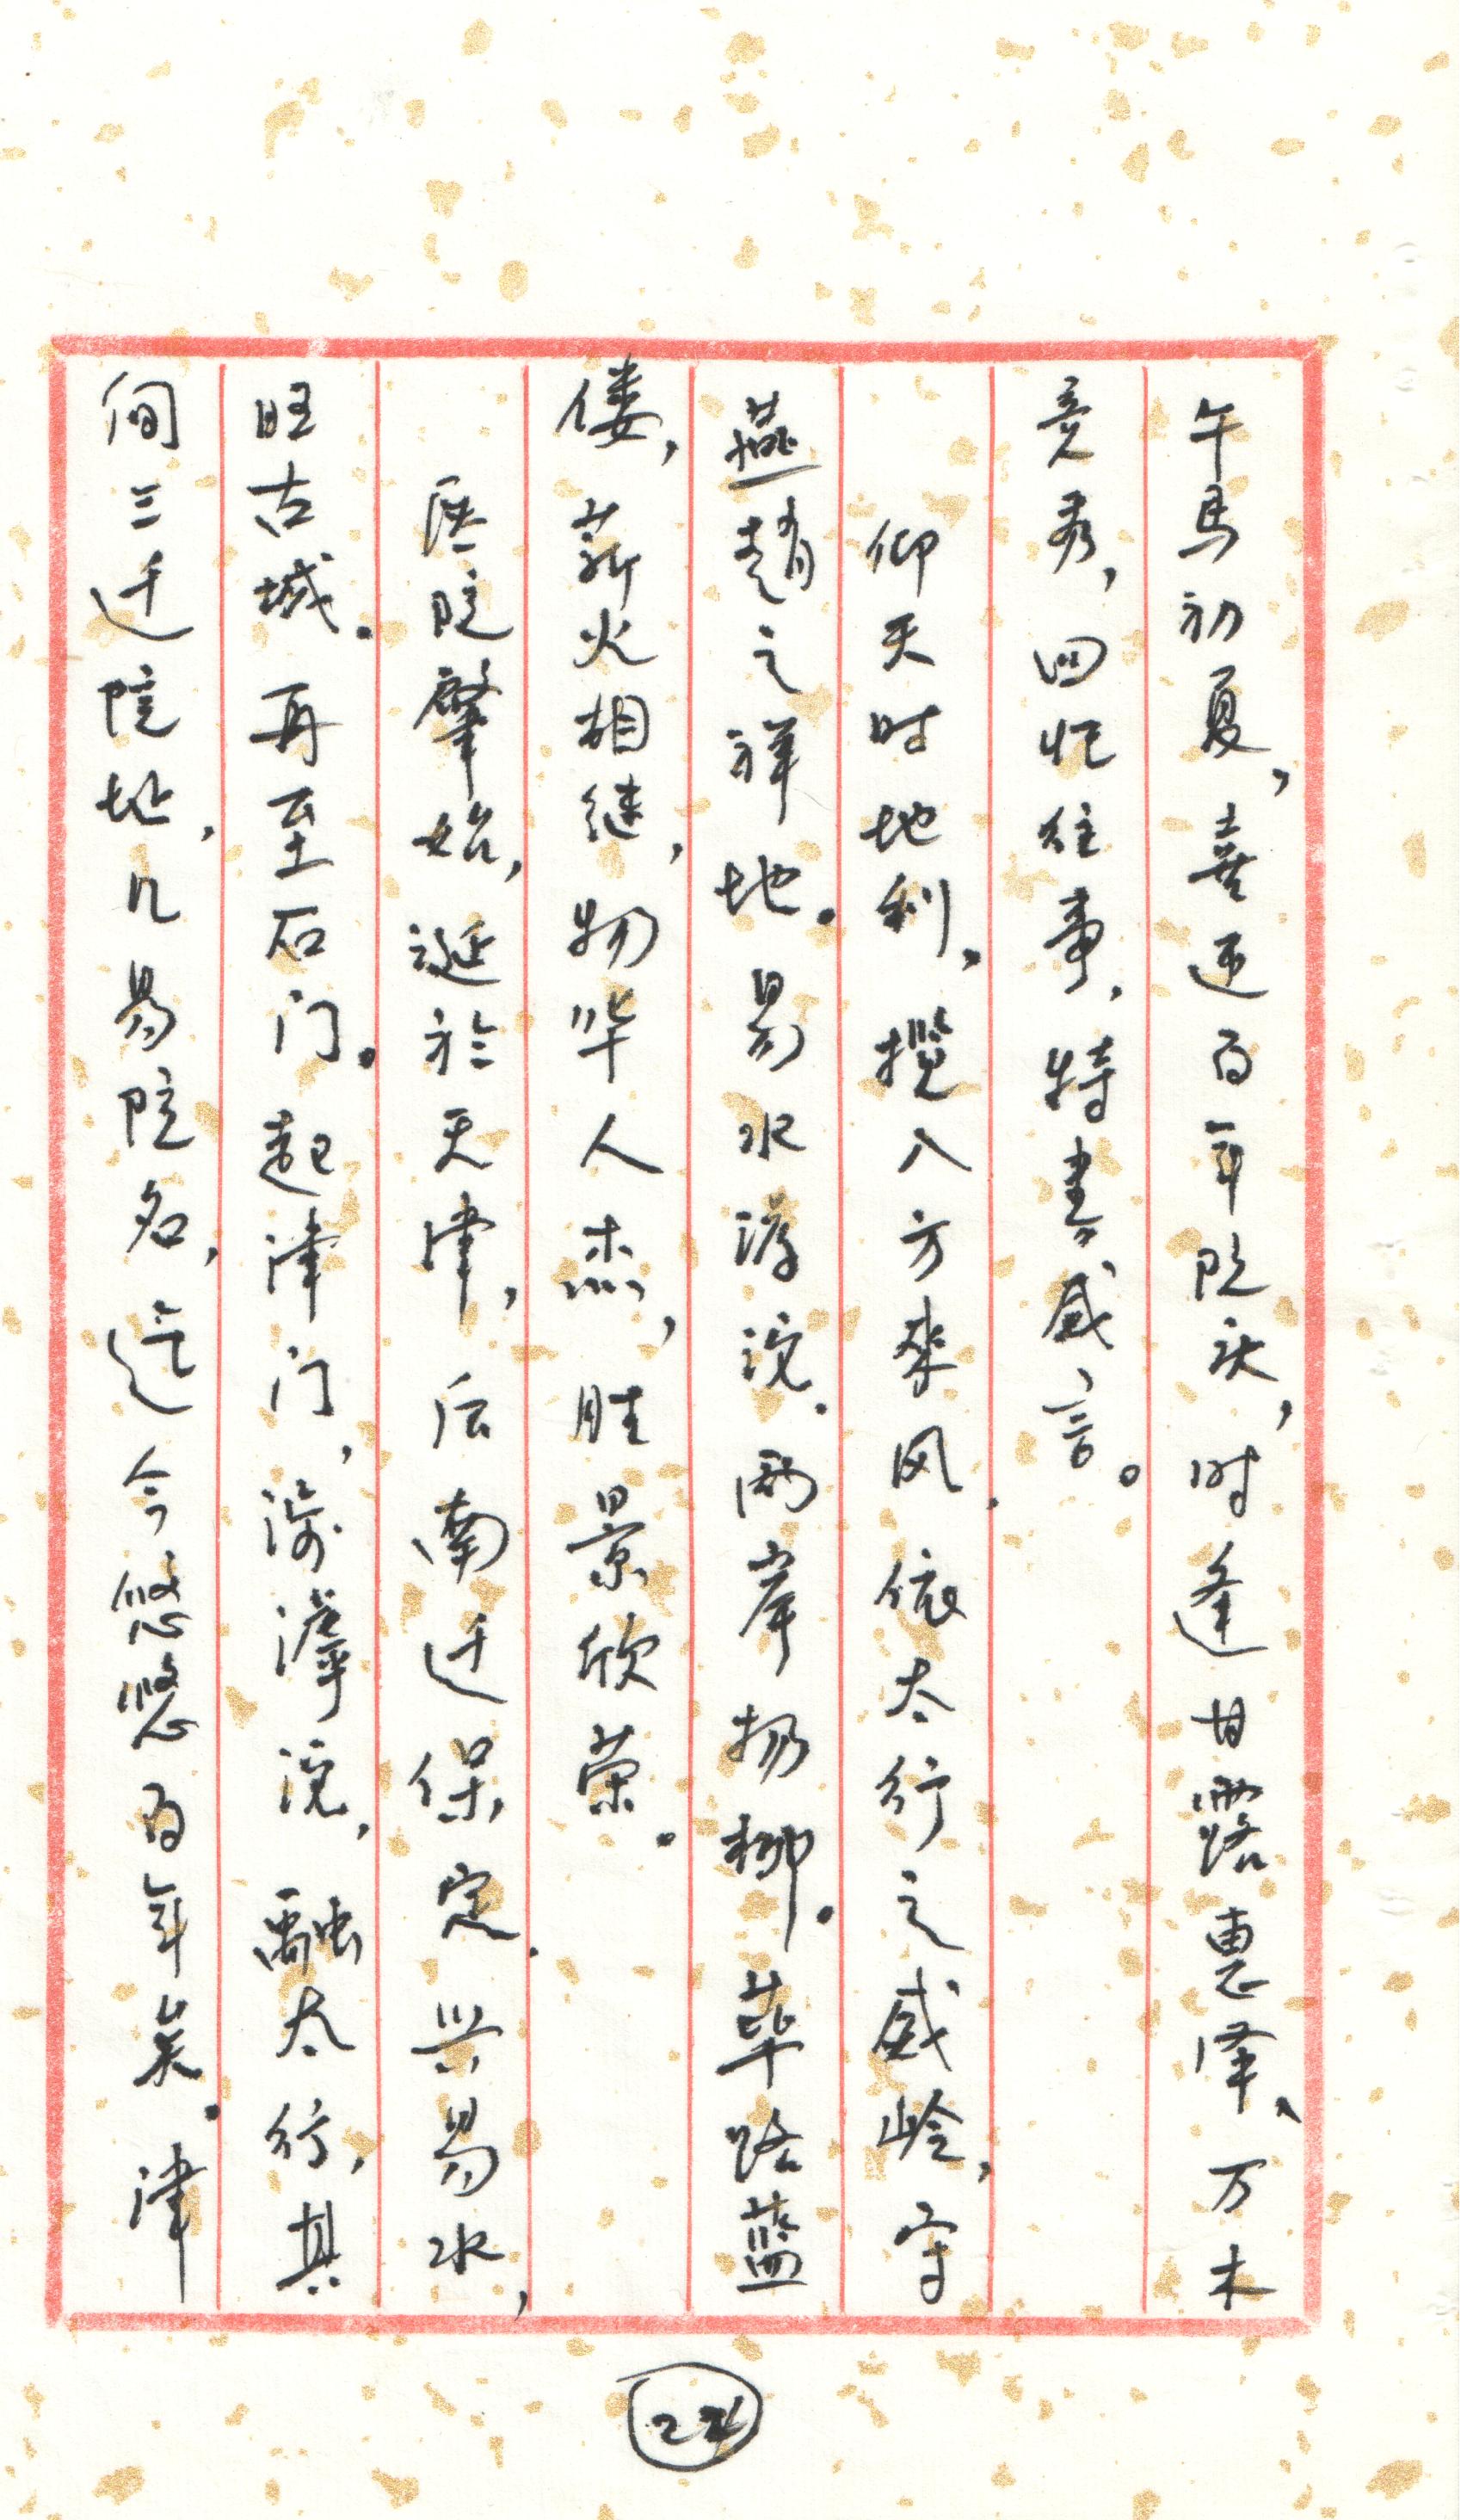 午马初夏，喜迎百年院庆，时逢甘露惠泽、万木
竞秀，回忆往事，特书感言。
仰天时地利，揽八方来风，依太行之威岭，守
燕赵之祥地。易水游浣，两岸扬柳。荜路蓝
偻，薪火相继，物华人杰，胜景欣荣。
医院肇始，诞於天津，后南迁保定，兴易水，
旺古城。再至石门。起津门，滹浣，融太行，其
间三迁院址，几易院名，迄今悠悠百年矣。津